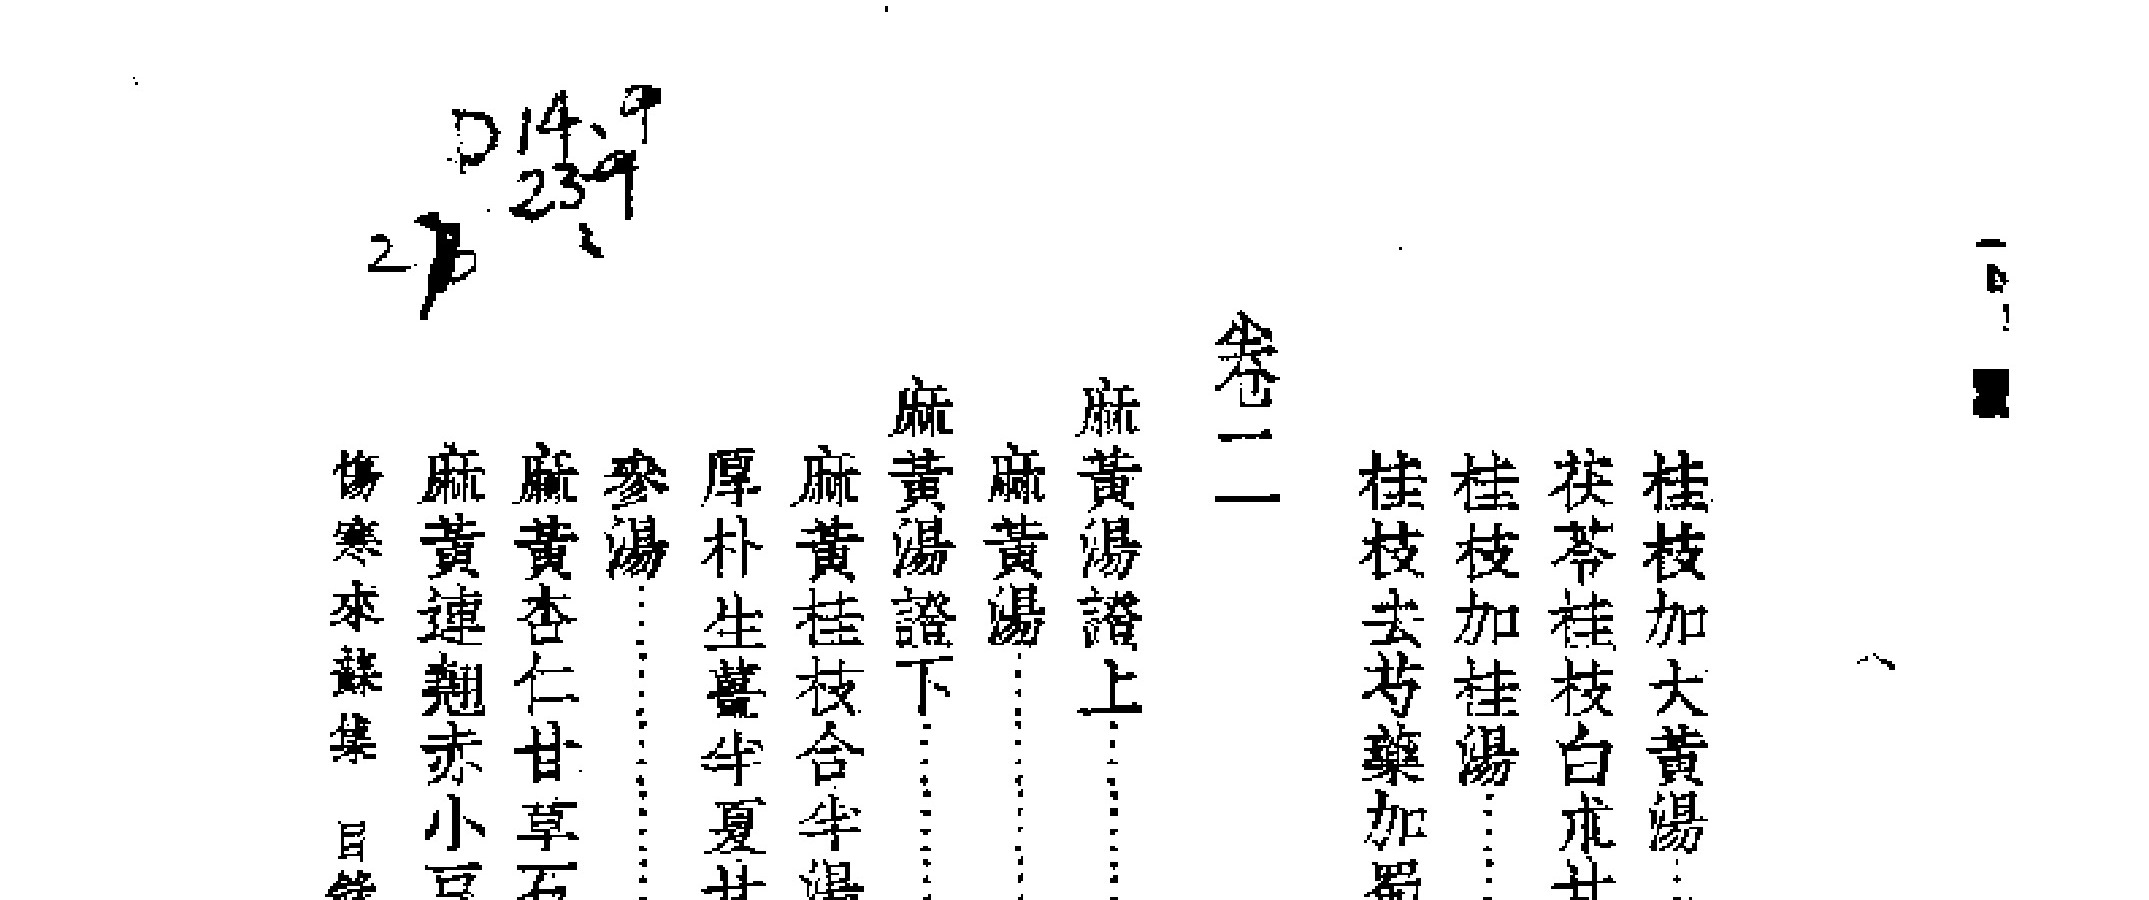 桂枝加大黃湯
茯苓桂枝白朮甘
桂枝加桂湯
桂枝去芍藥加蜀
卷二
麻黃湯證上
麻黃湯
麻黃湯證下
麻黃桂枝合半湯
厚朴生薑半夏甘
參湯
麻黃杏仁甘草石
麻黃連翹赤小豆
傷寒來蘇集 目錄
D14.9
239
2